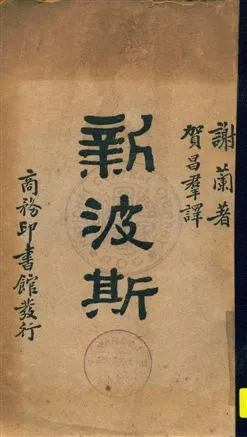 謝蘭著
賀昌羣譯
新波斯
商務印書館發行